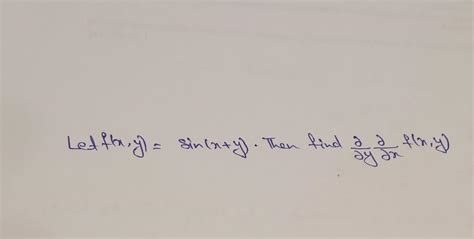 Let f(x,y) = sin(x+y). Then find ∂/∂y ∂/∂x f(x,y)